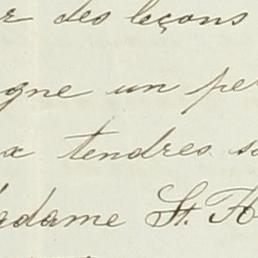 r des leçons
gne un pe
x tendres s
adame St. H